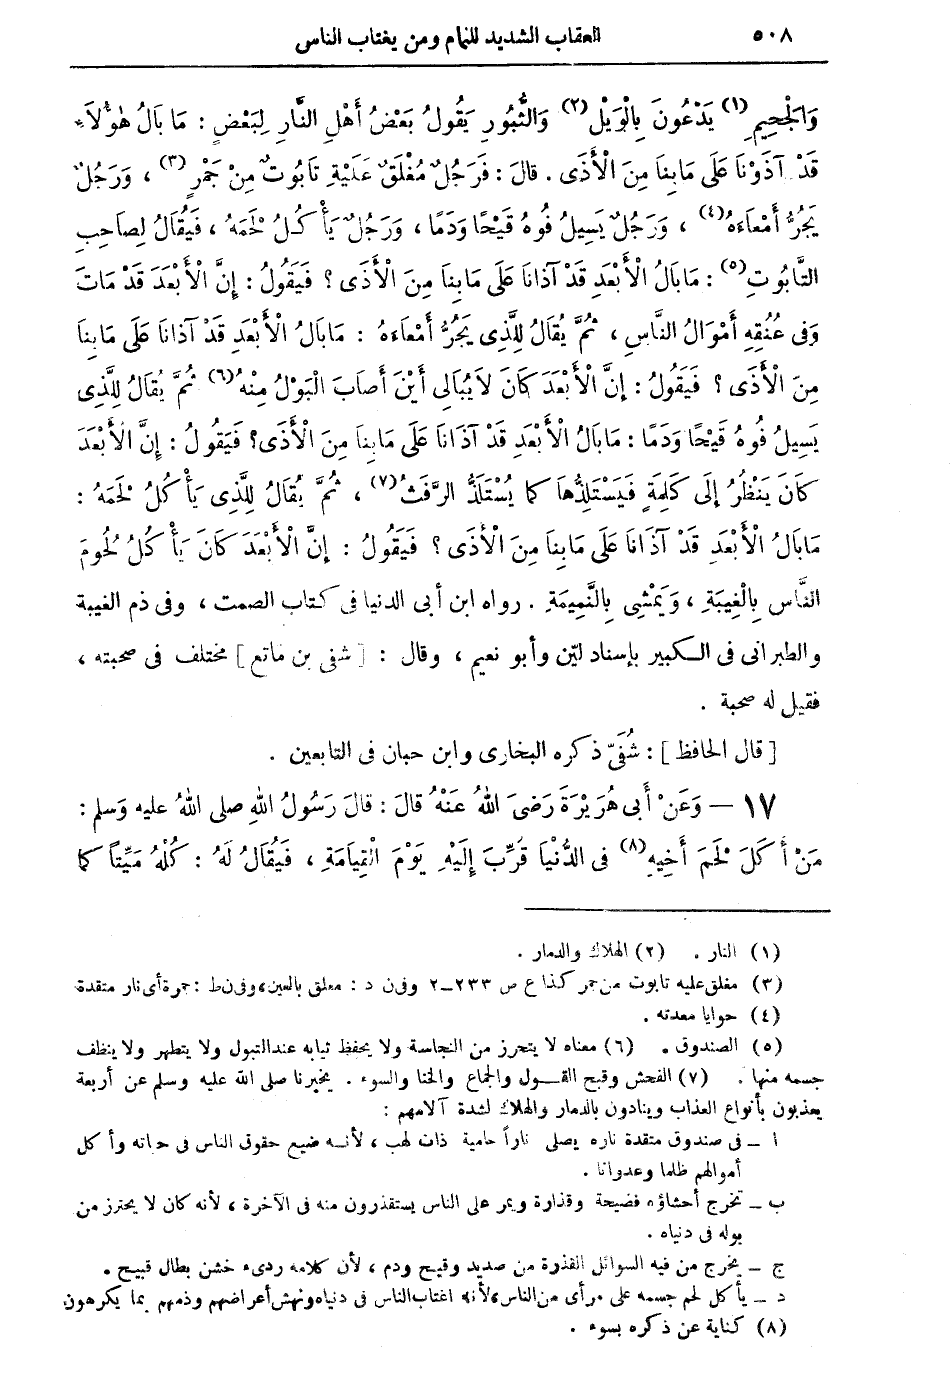 ٥٠٨ العقاب الشديد للنمام ومن يغتاب الناس
وَالْجَحِيمِ (١) يَدْعُونَ بِالْوَيْلِ (٢) وَالثُّبُورِ يَقُولُ بَعْضُ أَهْلِ النَّارِ لِبَعْضٍ : مَا بَالُ هٰؤُلَاءِ
قَدْ آذَوْنَا عَلَى مَا بِنَا مِنَ الْأَذَى . قالَ : فَرَجُلٌ مُغْلَقٌ عَلَيْهِ تَابُوتٌ مِنْ جَمْرٍ (٣) ، وَرَجُلٌ
يَجُرُّ أَمْعَاءَهُ (٤) ، وَرَجُلٌ يَسِيلُ فُوهُ قَيْحًا وَدَمًا ، وَرَجُلٌ يَأْ كُلُ لَحْمَهُ ، فَيُقَالُ لِصَاحِبِ
التَّابُوتِ (٥) : مَا بَالُ الْأَبْعَدِ قَدْ آذَانَا عَلَى مَا بِنَا مِنَ الْأَذَى ؟ فَيَقُولُ : إِنَّ الْأَبْعَدَ قَدْ مَاتَ
وَفِى عُنُقِهِ أَمْوَالُ النَّاسِ ، ثُمَّ يُقَالُ لِلَّذِى يَجُرُّ أَمْعَاءَهُ : مَا بَالُ الْأَبْعَدِ قَدْ آذَانَا عَلَى مَا بِنَا
مِنَ الْأَذَى ؟ فَيَقُولُ : إِنَّ الْأَبْعَدَ كَانَ لَا يُبَالِى أَيْنَ أَصَابَ الْبَوْلُ مِنْهُ (٦) ثُمَّ يُقَالُ لِلَّذِى
يَسِيلُ فُوهُ قَيْحًا وَدَمًا : مَا بَالُ الْأَبْعَدِ قَدْ آذَانَا عَلَى مَا بِنَا مِنَ الْأَذَى ؟ فَيَقُولُ : إِنَّ الْأَبْعَدَ
كَانَ يَنْظُرُ إِلَى كَلِمَةٍ فَيَسْتَلِذُّهَا كَمَا يُسْتَلَذُّ الرَّفَثُ (٧) ، ثُمَّ يُقَالُ لِلَّذِى يَأْ كُلُ لَحْمَهُ :
مَا بَالُ الْأَبْعَدِ قَدْ آذَانَا عَلَى مَا بِنَا مِنَ الْأَذَى ؟ فَيَقُولُ : إِنَّ الْأَبْعَدَ كَانَ يَأْ كُلُ لُحُومَ
النَّاسِ بِالْغِيبَةِ ، وَيَمْشِى بِالنَّمِيمَةِ . رواه ابن أبى الدنيا فى كتاب الصمت ، وفى ذم الغيبة
والطبرانى فى الكبير بإسناد ليّن وأبو نعيم ، وقال : [ شفى بن ماتع ] مختلف فى صحبته ،
فقيل له صحبة .
[ قال الحافظ ] : شُفَىّ ذكره البخارى وابن حبان فى التابعين .
١٧ — وَعَنْ أَبِى هُرَيْرَةَ رَضِىَ اللهُ عَنْهُ قالَ : قالَ رَسُولُ اللهِ صلى اللهُ عليه وَسلم :
مَنْ أَ كَلَ لَحْمَ أَخِيهِ (٨) فِى الدُّنْيَا قُرِّبَ إِلَيْهِ يَوْمَ الْقِيَامَةِ ، فَيُقَالُ لَهُ : كُلْهُ مَيِّتًا كَمَا
(١) النار . (٢) الهلاك والدمار .
(٣) مغلق عليه تابوت من جمر كذا ع ص ٢٣٣-٢ وفى ن د : معلق بالعين، وفى ن ط : جمرة أى نار متقدة
(٤) حوايا معدته .
(٥) الصندوق . (٦) معناه لا يتحرز من النجاسة ولا يحفظ ثيابه عند التبول ولا يتطهر ولا ينظف
جسمه منها . (٧) الفحش وقبح القول والجماع والخنا والسوء . يخبرنا صلى الله عليه وسلم عن أربعة
يعذبون بأنواع العذاب وينادون بالدمار والهلاك لشدة آلامهم :
ا — فى صندوق متقدة ناره يصلى ناراً حامية ذات لهب ، لأنه ضيع حقوق الناس فى حياته وأ كل
أموالهم ظلما وعدوانا .
ب — تخرج أحشاؤه فضيحة وقذارة ويمر على الناس يستقذرون منه فى الآخرة ، لأنه كان لا يحترز من
بوله فى دنياه .
ج — يخرج من فيه السوائل القذرة من صديد وقيح ودم ، لأن كلامه ردىء خشن بطال قبيح .
د — يأ كل لحم جسمه على مرأى من الناس، لأنه اغتاب الناس فى دنياه ونهش أعراضهم وذمهم بما يكرهون
(٨) كناية عن ذكره بسوء .